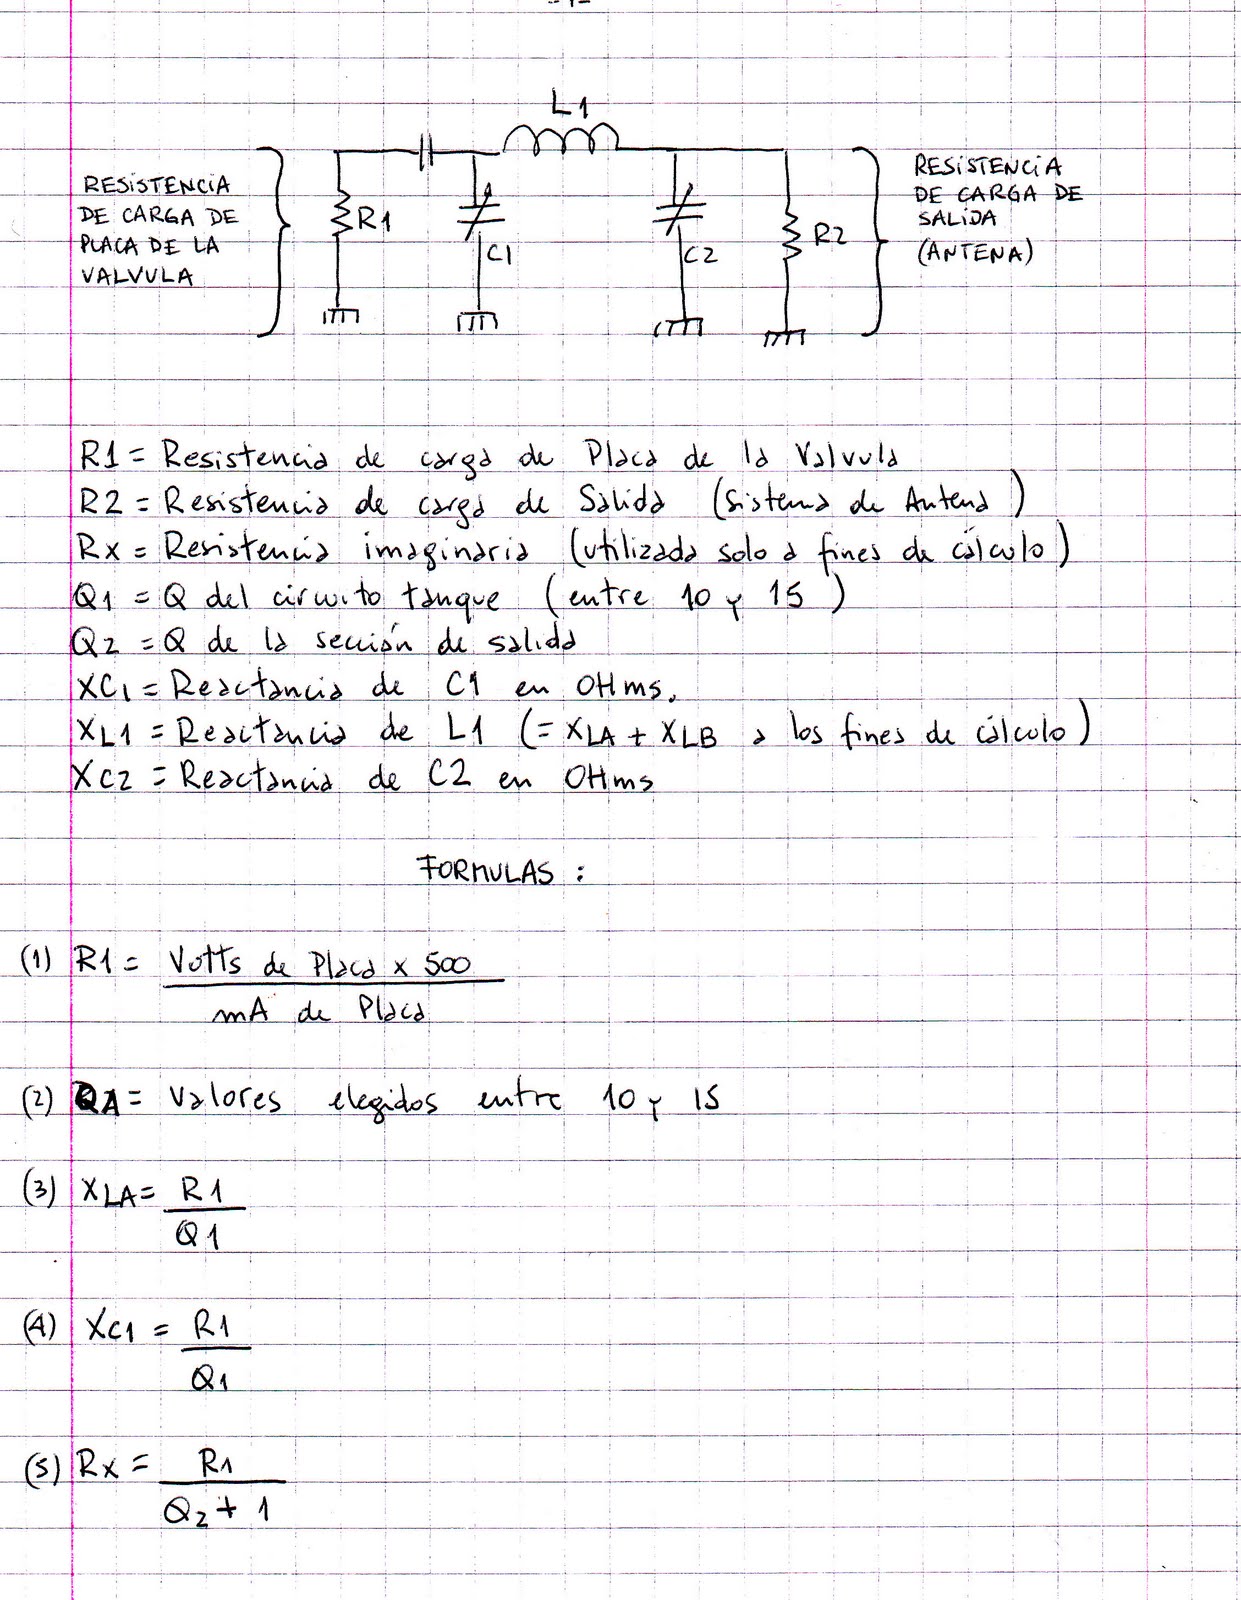 -1-
L1
RESISTENCIA
DE CARGA DE
PLACA DE LA
VALVULA
R1
C1
C2
R2
RESISTENCIA
DE CARGA DE
SALIDA
(ANTENA)
R1 = Resistencia de carga de Placa de la Valvula
R2 = Resistencia de carga de Salida (Sistema de Antena)
Rx = Resistencia imaginaria (utilizada solo a fines de cálculo)
Q1 = Q del circuito tanque (entre 10 y 15)
Q2 = Q de la sección de salida
XC1 = Reactancia de C1 en OHms.
XL1 = Reactancia de L1 (= XLA + XLB a los fines de cálculo)
XC2 = Reactancia de C2 en OHms
FORMULAS :
(1) R1 = Volts de Placa x 500
mA de Placa
(2) QA = Valores elegidos entre 10 y 15
(3) XLA = R1
Q1
(4) XC1 = R1
Q1
(5) Rx = R1
Q2 + 1